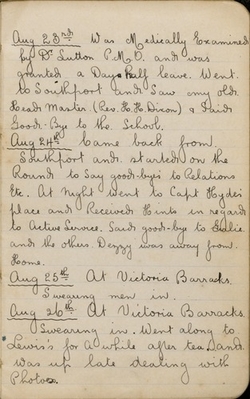 Aug 23rd. Was Medically Examined
by Dr Sutton P.M.O. and was
granted a Days full leave. Went
to Southport and saw my old
Head Master (Rev. H. H. Dixon) & Said
Good-Bye to the School.
Aug 24th Came back from
Southport and started on the
Round to Say good-bye's to Relations
Etc. At Night went to Capt Hydes
place and Received Hints in regard
to Active Service. Said good-bye to
and the others. Dezzy was away from
Home.
Aug 25th At Victoria Barracks.
Swearing men in.
Aug 26th At Victoria Barracks
Swearing in. Went along to
Lewis's for a while after tea and
was up late dealing with
Photos.